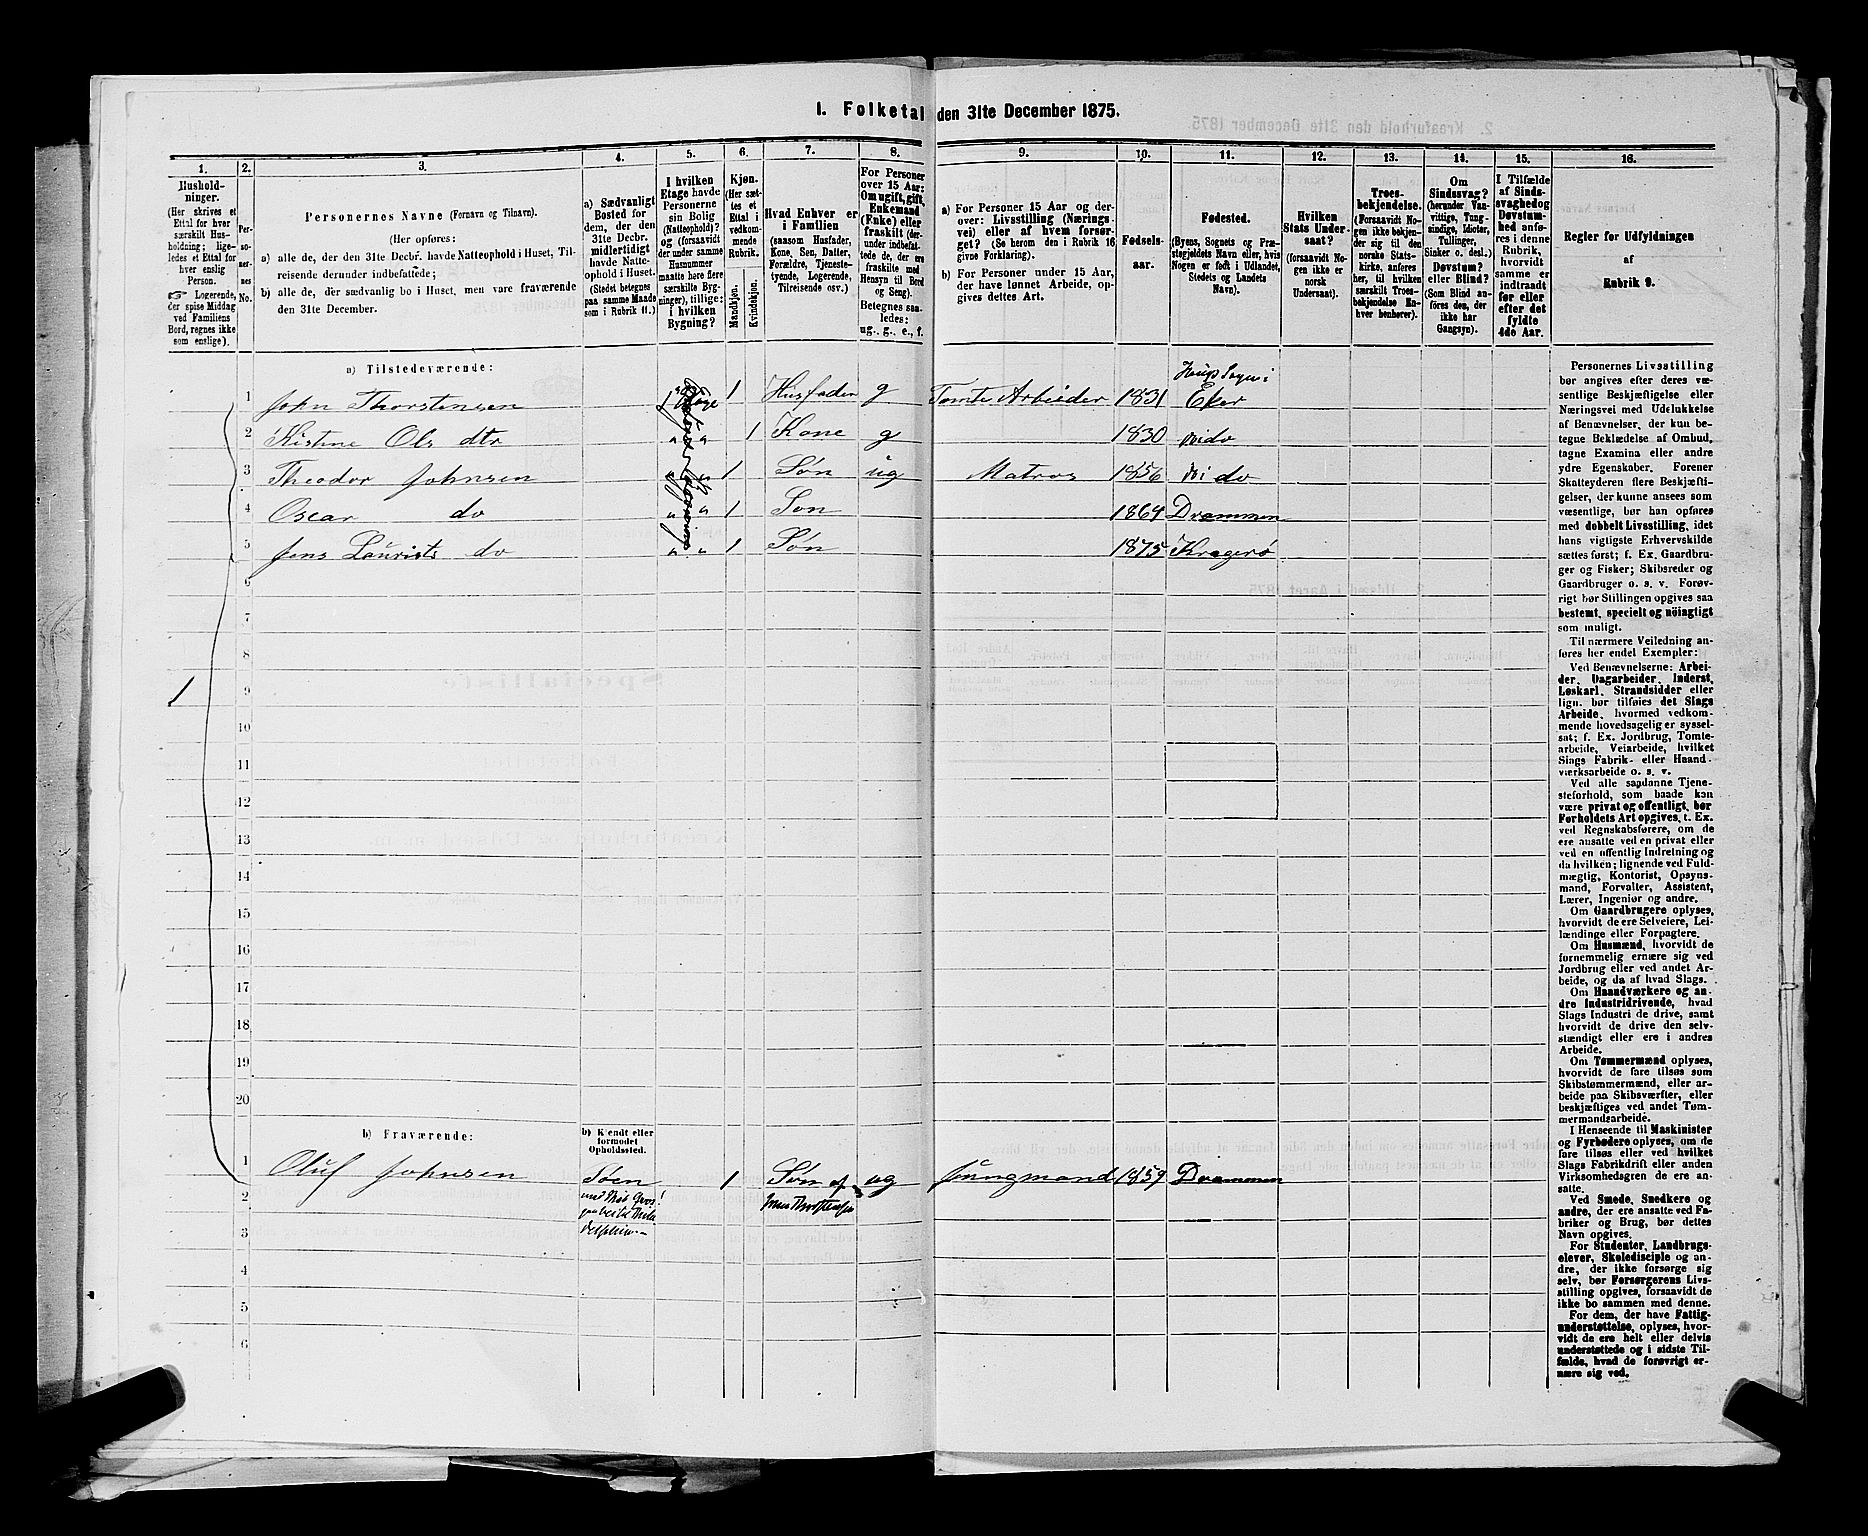 1. Folketal den 31te December 1875.
1. 2. 3. 4. 5. 6. 7. 8. 9. 10. 11. 12. 13. 14. 15. 16.
Hushold-
ninger.
(Her skrives et
Ettal for hver
særskilt Hus-
holdning; lige-
ledes et Ettal for
hver enslig
Person.
☞ Logerende,
der spise Middag
ved Familiens
Bord, regnes ikke
som enslige).
Per-
so-
ner-
nes
No.
Personernes Navne (Fornavn og Tilnavn).
(Her opføres:
a) alle de, der den 31te Decbr. havde Natteophold i Huset, Til-
reisende derunder indbefattede;
b) alle de, der sædvanlig bo i Huset, men vare fraværende
den 31te December.
a) Sædvanligt
Bosted for
dem, der den
31te Decbr.
midlertidigt
havde Natte-
ophold i Huset.
(Stedet betegnes
paa samme Maade
som i Rubrik 11.)
I hvilken
Etage havde
Personerne
sin Bolig
(Natteophold)?
og (forsaavidt
Husnummer
maatte høre flere
særskilte Byg-
ninger), tillige:
i hvilken
Bygning?
Kjøn.
(Her sæt-
tes et
Ettal i
vedkom-
mende
Rubrik.
Mandkjøn.
Kvindekjøn.
Hvad Enhver er
i Familien
(saasom Husfader,
Kone, Søn, Datter,
Forældre, Tjeneste-
tyende, Logerende,
Tilreisende osv.)
For Personer
over 15 Aar:
Om ugift, gift,
Enkemand
(Enke) eller
fraskilt (der-
under indbefat-
tede de, der ere
fraskilte med
Hensyn til Bord
og Seng).
Betegnes saa-
ledes:
ug., g., e., f.
a) For Personer 15 Aar og der-
over: Livsstilling (Nærings-
vei) eller af hvem forsør-
get? (Se herom den i Rubrik 16
givne Forklaring).
b) For Personer under 15 Aar,
der have lønnet Arbeide, op-
gives dettes Art.
Fødsels-
aar.
Fødested.
(Byens, Sognets og Præ-
stegjeldets Navn eller, hvis
Nogen er født i Udlandet,
Stedets og Landets
Navn).
Hvilken
Stats Under-
saat?
(forsaavidt No-
gen ikke er
norsk
Undersaat).
Troes-
bekjendelse.
(Forsaavidt No-
gen ikke bekjen-
der sig til den
norske Stats-
kirke, anføres
her, til hvilken
særskilt Troes-
bekjendelse En-
hver henhører).
Om
Sindssvag?
(herunder Van-
vittige, Tung-
sindige, Idioter,
Tullinger,
Sinker o. desl.)
Døvstum?
eller Blind?
(Som Blind an-
føres den, der
ikke har
Gangsyn).
I Tilfælde
af Sinds-
svaghed og
Døvstum-
hed anfø-
res i denne
Rubrik,
hvorvidt
samme er
indtraadt
før eller
efter det
fyldte
4de Aar.
Regler for Udfyldningen
af
Rubrik 9.
a) Tilstedeværende:
1 John Thorstensen 1 Etage 1 Husfader g Tomte Arbeider 1831 Eker
2 Kistine Ols dtr " " 1 Kone g 1830 do
3 Theodor Johnsen " " 1 Søn ug Matros 1856 do
4 Oscar do " " 1 Søn 1864 Drammen
5 Jens Laurits do " " 1 Søn 1875 Kragerø
6
7
8
1 9
10
11
12
13
14
15
16
17
18
19
20
b) Fraværende:
b) Kjendt eller
formodet
Opholdssted.
1 Oluf Johnsen Søen 1 Søn af ug Jungmand 1859 Drammen
2
3
4
5
6
Personernes Livsstilling
bør angives efter deres væ-
sentlige Beskjæftigelse eller
Næringsvei med Udelukkelse
af Benævnelser, der kun be-
tegne Beklædelse af Ombud,
tagne Examina eller andre
ydre Egenskaber. Forener
Skatteyderen flere Beskjæfti-
gelser, der kunne ansees som
væsentlige, bør han opføres
med dobbelt Livsstilling, idet
hans vigtigste Erhvervskilde
sættes først; f. Ex. Gaardbru-
ger og Fisker; Skibsreder og
Gaardbruger o. s. v. Forøv-
rigt bør Stillingen opgives saa
bestemt, specielt og nöiagtigt
som muligt.
Til nærmere Veiledning an-
føres her endel Exempler:
Ved Benævnelserne: Arbei-
der, Dagarbeider, Inderst,
Løskarl, Strandsidder eller
lign. bør tilføies det Slags
Arbeide, hvormed vedkom-
mende hovedsagelig er syssel-
sat; f. Ex. Jordbrug, Tomte-
arbeide, Veiarbeide, hvilket
Slags Fabrik- eller Haand-
værksarbeide o. s. v.
Ved alle saadanne Tjene-
steforhold, som baade kan
være privat og offentligt, bør
Forholdets Art opgives, t. Ex.
ved Regnskabsførere, om de
ere ansatte ved en privat eller
ved en offentlig Indretning og
da hvilken; lignende ved Fuld-
mægtig, Kontorist, Opsyns-
mand, Forvalter, Assistent,
Lærer, Ingeniør og andre.
Om Gaardbrugere oplyses,
hvorvidt de ere Selveiere, Lei-
lændinge eller Forpagtere.
Om Husmænd, hvorvidt de
fornemmelig ernære sig ved
Jordbrug eller ved andet Ar-
beide, og da af hvad Slags.
Om Haandværkere og an-
dre Industridrivende, hvad
Slags Industri de drive, samt
hvorvidt de drive den selv-
stændigt eller ere i andres
Arbeide.
Om Tømmermænd oplyses,
hvorvidt de fare tilsøs som
Skibstømmermænd, eller ar-
beide paa Skibsværfter, eller
beskjæftiges ved andet Tøm-
mermandsarbeide.
I Henseende til Maskinister
og Fyrbødere oplyses, om de
fare tilsøs eller ved hvilket
Slags Fabrikdrift eller anden
Virksomhedsgren de ere an-
satte.
Ved Smede, Snedkere og
andre, der ere ansatte ved Fa-
briker og Brug, bør dettes
Navn opgives.
For Studenter, Landbrugs-
elever, Skoledisciple og an-
dre, der ikke forsørge sig
selv, bør Forsørgerens Livs-
stilling opgives, forsaavidt de
ikke bo sammen med denne.
For dem, der have Fattig-
understøttelse, oplyses, hvor-
vidt de ere helt eller delvis
understøttede og i sidste Til-
fælde, hvad de forøvrigt er-
nære sig ved.